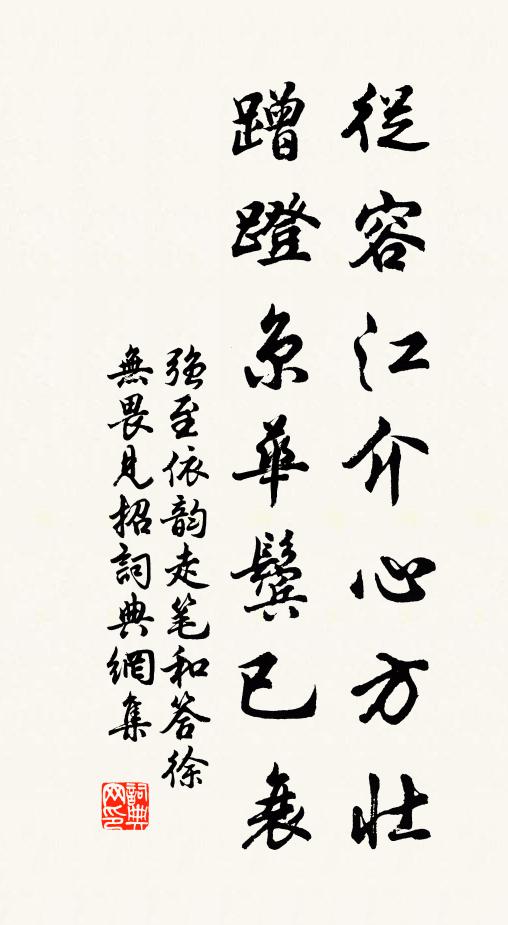 從容江介心方壯
蹭蹬京華鬢已衰
強至依韵走筆和答徐
無畏見招詞典網集
詞典网印